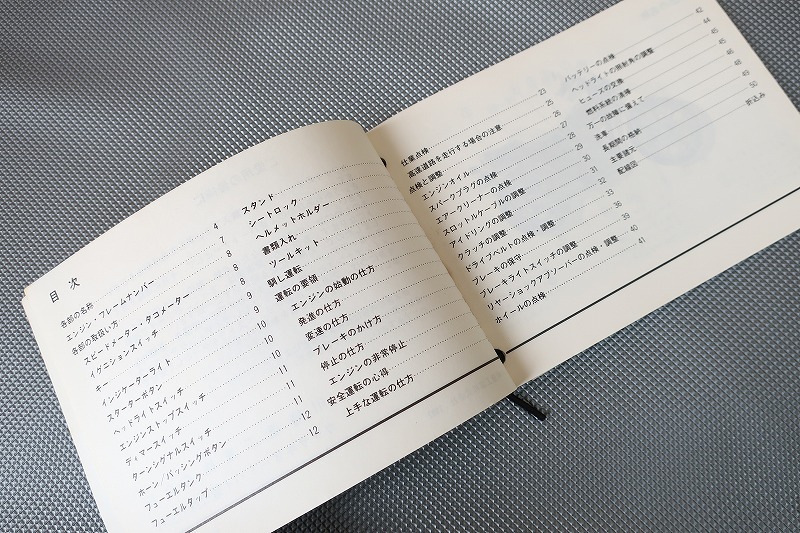 目次
各部の名称 4
エンジン・フレームナンバー 7
各部の取扱い方 8
スピードメーター・タコメーター 8
イグニションスイッチ 8
キー 9
インジケーターライト 9
スターターボタン 10
ヘッドライトスイッチ 10
エンジンストップスイッチ 10
ディマースイッチ 11
ターンシグナルスイッチ 11
ホーン/パッシングボタン 11
フューエルタンク 12
フューエルタップ 12
スタンド
シートロック
ヘルメットホルダー
書類入れ
ツールキット
馴し運転
運転の要領
エンジンの始動の仕方
発進の仕方
変速の仕方
ブレーキのかけ方
停止の仕方
エンジンの非常停止
安全運転の心得
上手な運転の仕方
仕業点検 23
高速道路を走行する場合の注意 25
点検と調整 26
エンジンオイル 27
スパークプラグの点検 28
エアークリーナーの点検 29
スロットルケーブルの調整 30
アイドリングの調整 31
クラッチの調整 32
ドライブベルトの点検・調整 33
ブレーキの保守 36
ブレーキライトスイッチの調整 39
リヤーショックアブソーバーの点検・調整 40
ホイールの点検 41
バッテリーの点検 42
ヘッドライトの照射角の調整 44
ヒューズの交換 45
燃料系統の清掃 45
万一の故障に備えて 46
洗車 48
長期間の格納 49
主要諸元 50
配線図 折込み